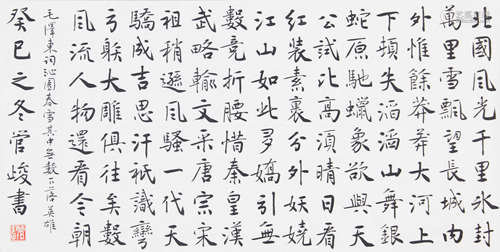 北國風光千里冰封
萬里雪飄望長城內
外惟餘莽莽大河上
下頓失滔滔山舞銀
蛇原馳蠟象欲與天
公試比高須晴日看
紅裝素裹分外妖嬈
江山如此多嬌引無
數競折腰惜秦皇漢
武略輸文采唐宗宋
祖稍遜風騷一代天
驕成吉思汗祇識彎
弓射大雕俱往矣數
風流人物還看今朝
毛澤東詞沁園春雪其中無數下落英雄
癸巳之冬管峻書